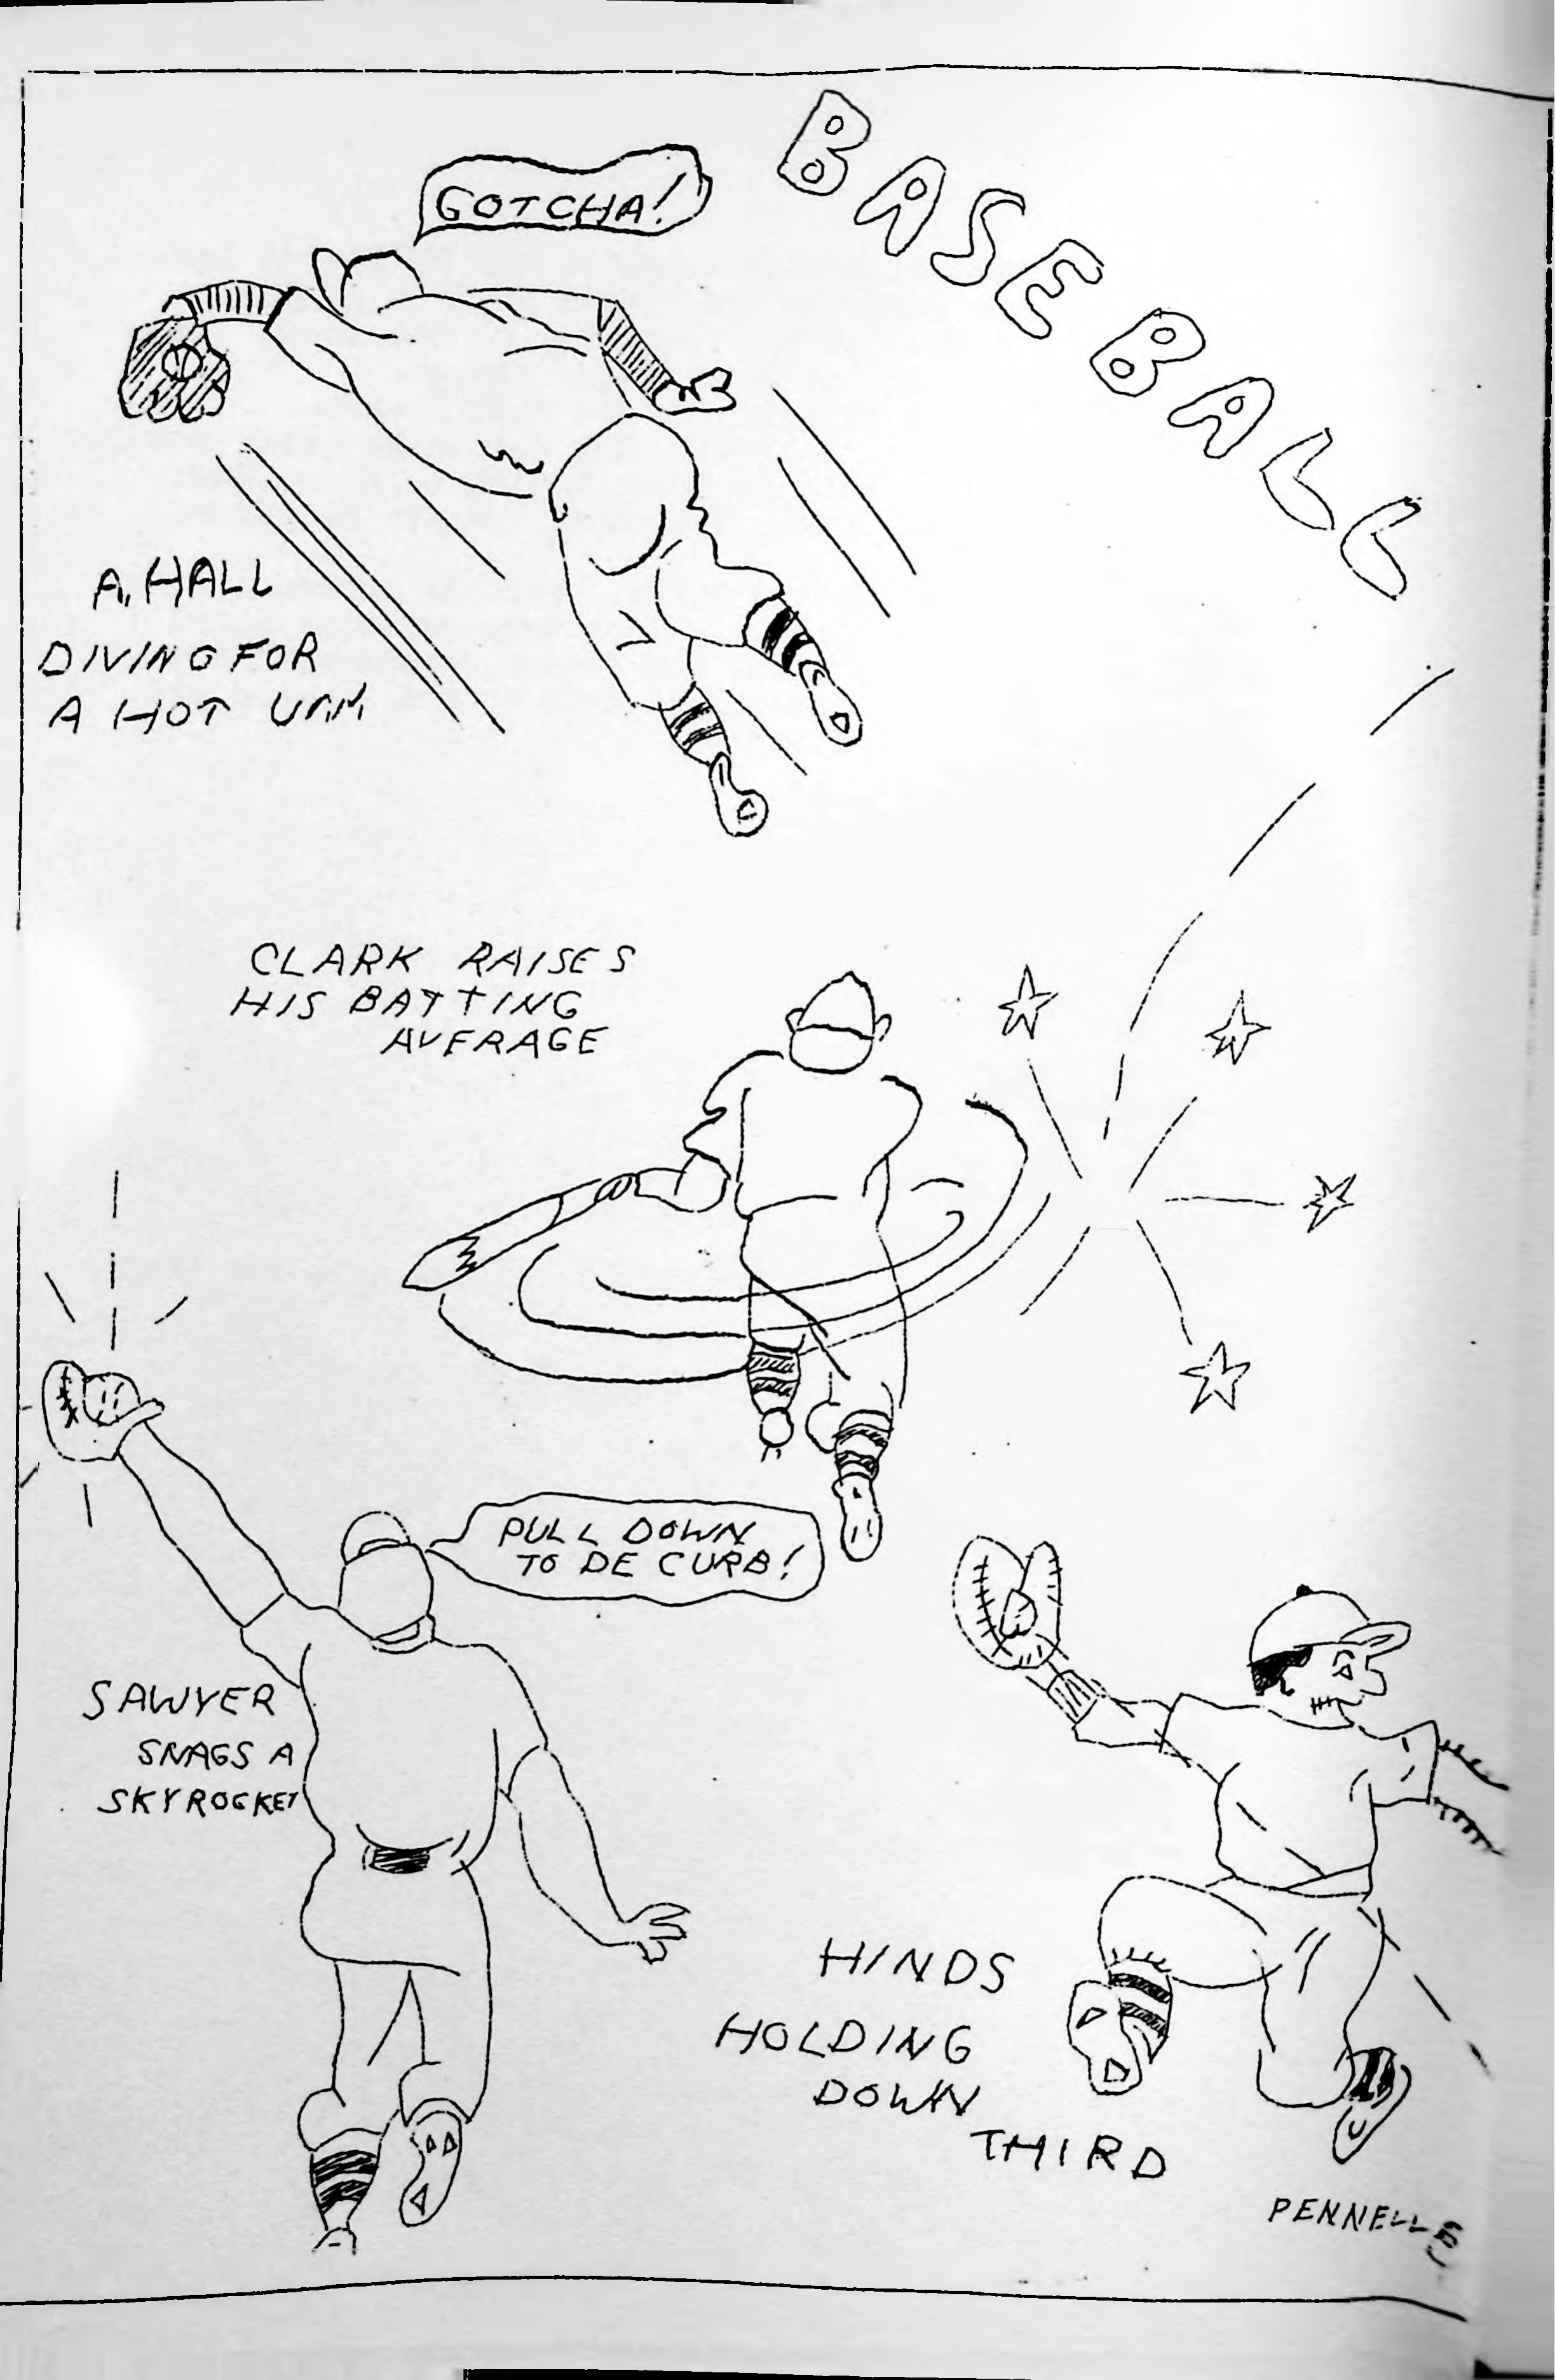 BASEBALL
GOTCHA!
A. HALL
DIVING FOR
A HOT
CLARK RAISES
HIS BATTING
AVERAGE
PULL DOWN
TO DE CURB!
SAWYER
SNAGS A
SKYROCKET
HINDS
HOLDING
DOWN
THIRD
PENNELL